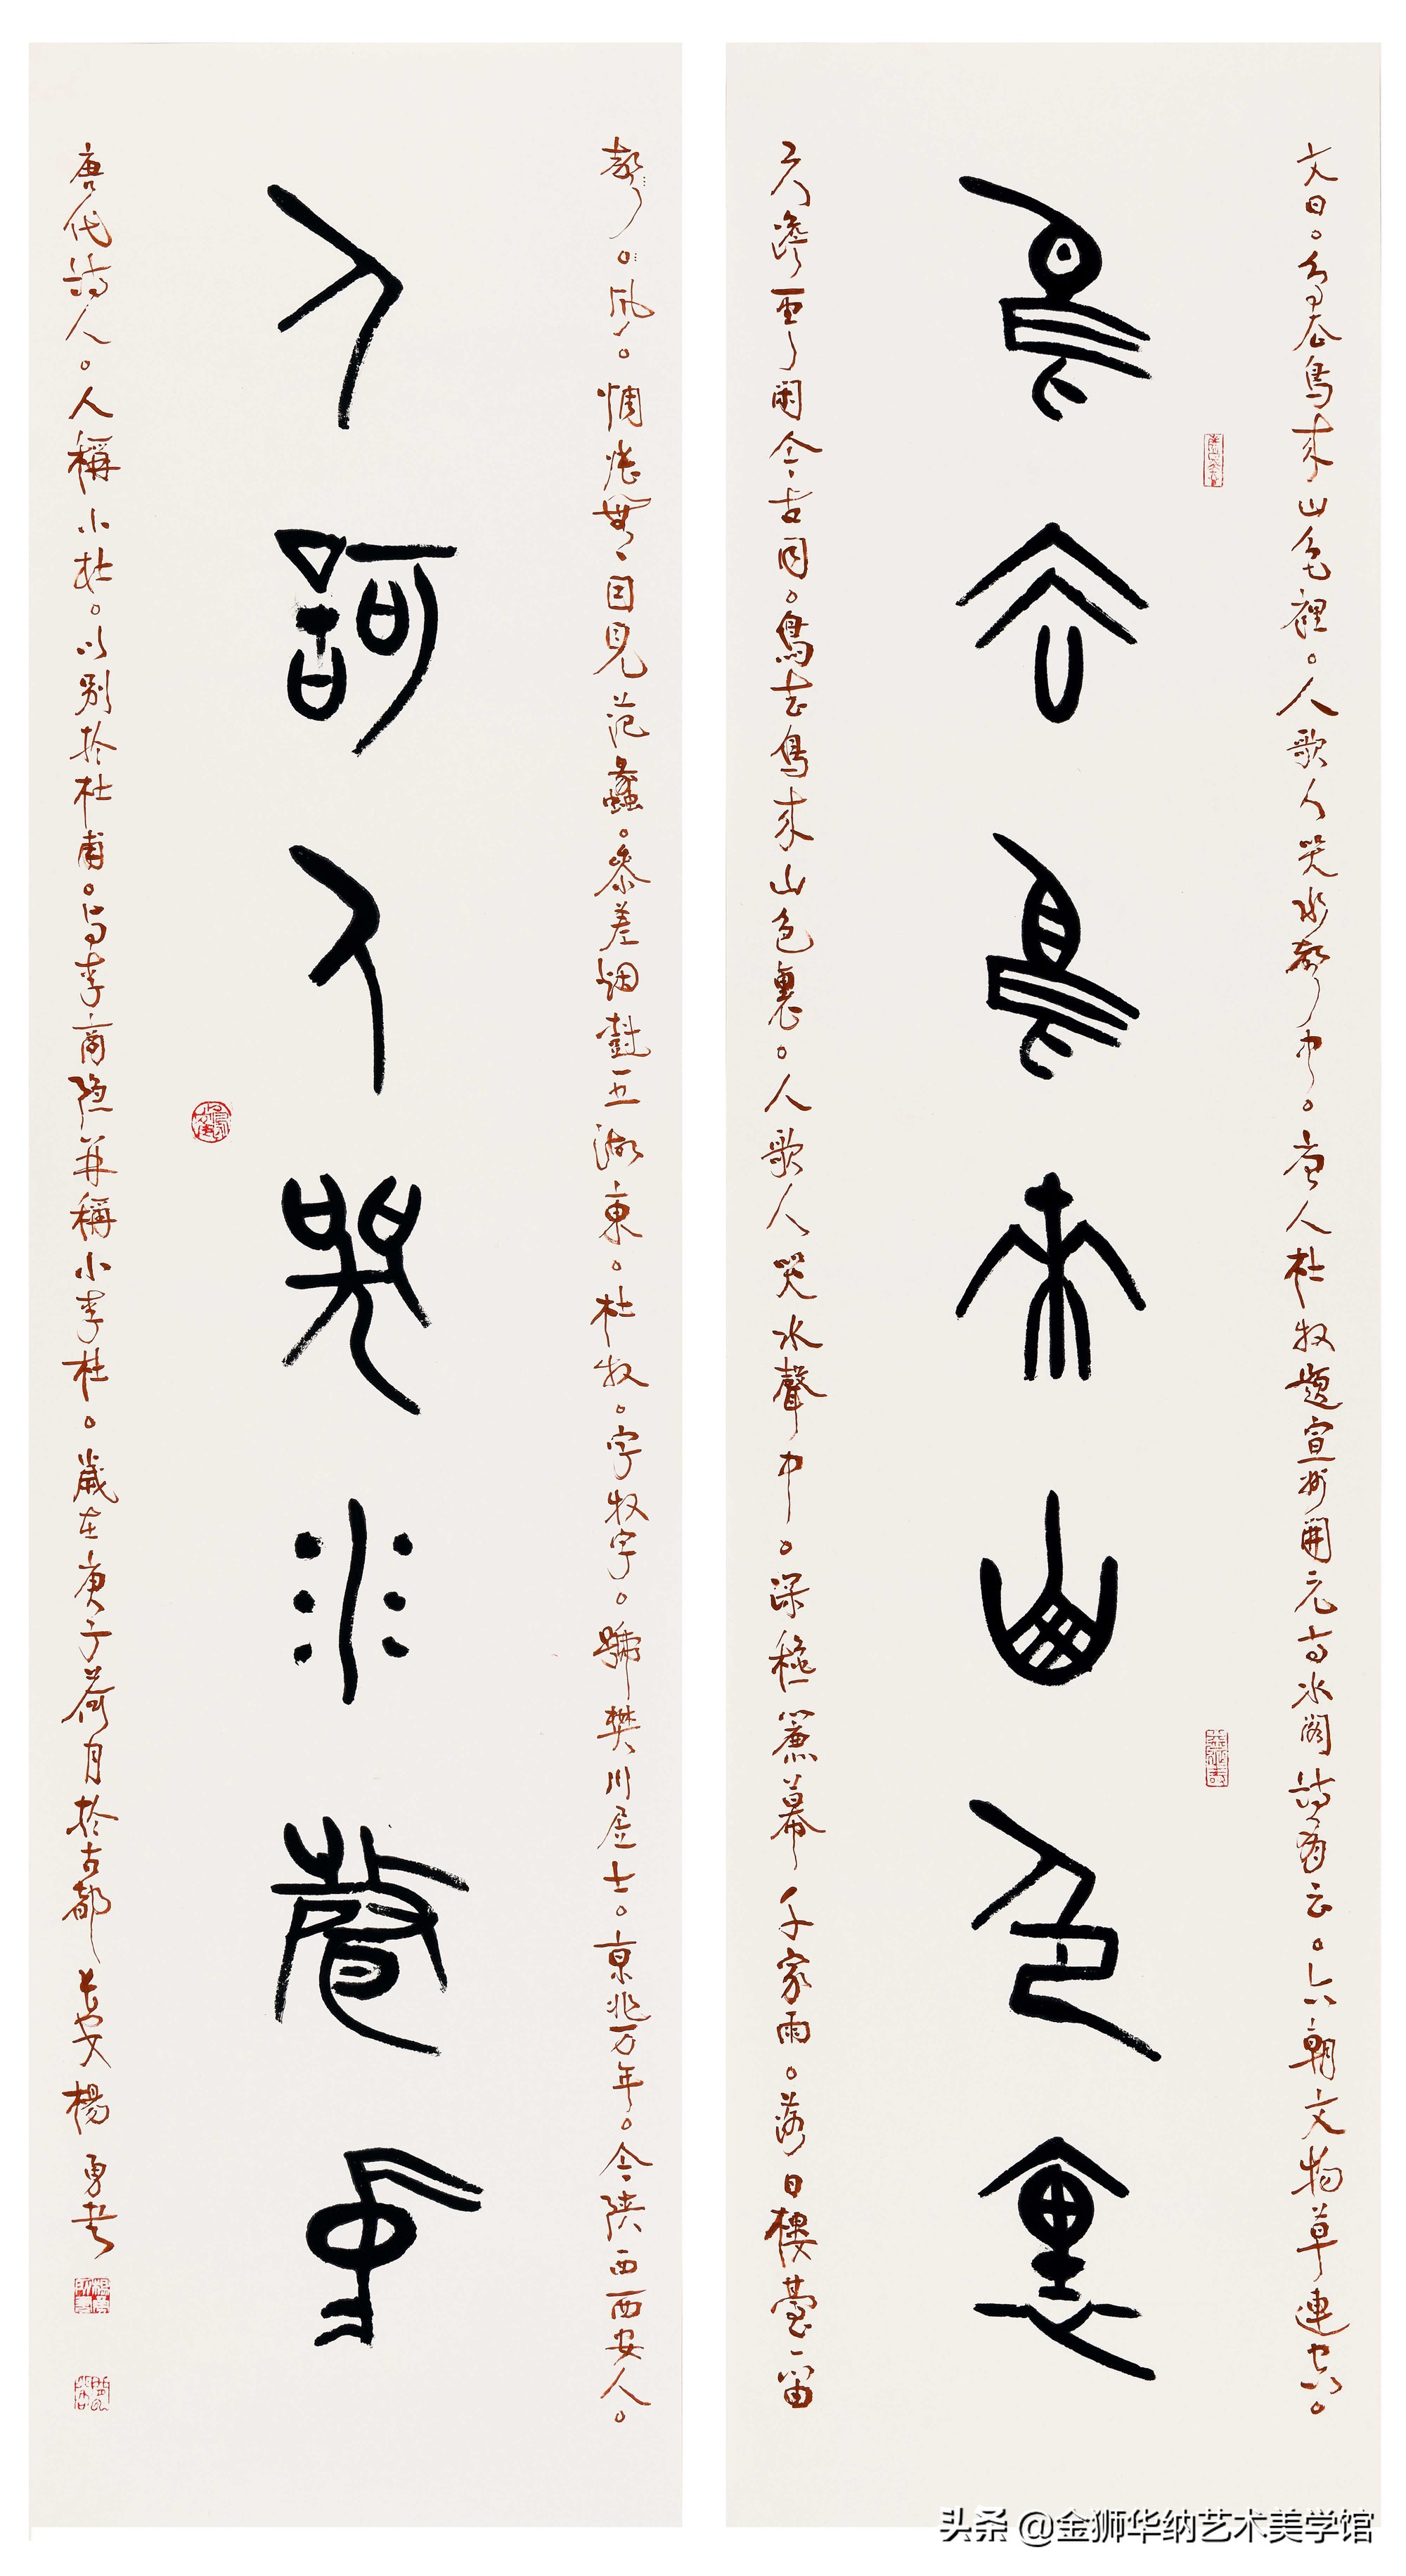 鳥去鳥來山色裏
人歌人哭水聲中
文曰。鳥去鳥來山色裡。人歌人哭水聲中。唐人杜牧題宣州開元寺水閣詩有云。六朝文物草連空。
天澹雲閑今古同。鳥去鳥來山色裏。人歌人哭水聲中。深秋簾幕千家雨。落日樓臺一笛
風。惆悵無因見范蠡。參差烟樹五湖東。杜牧。字牧字。號樊川居士。京兆万年。今陕西西安人。
唐代詩人。人稱小杜。以别於杜甫。与李商隐并稱小李杜。歲在庚子荷月於古都長安楊勇书
头条 @金狮华纳艺术美学馆